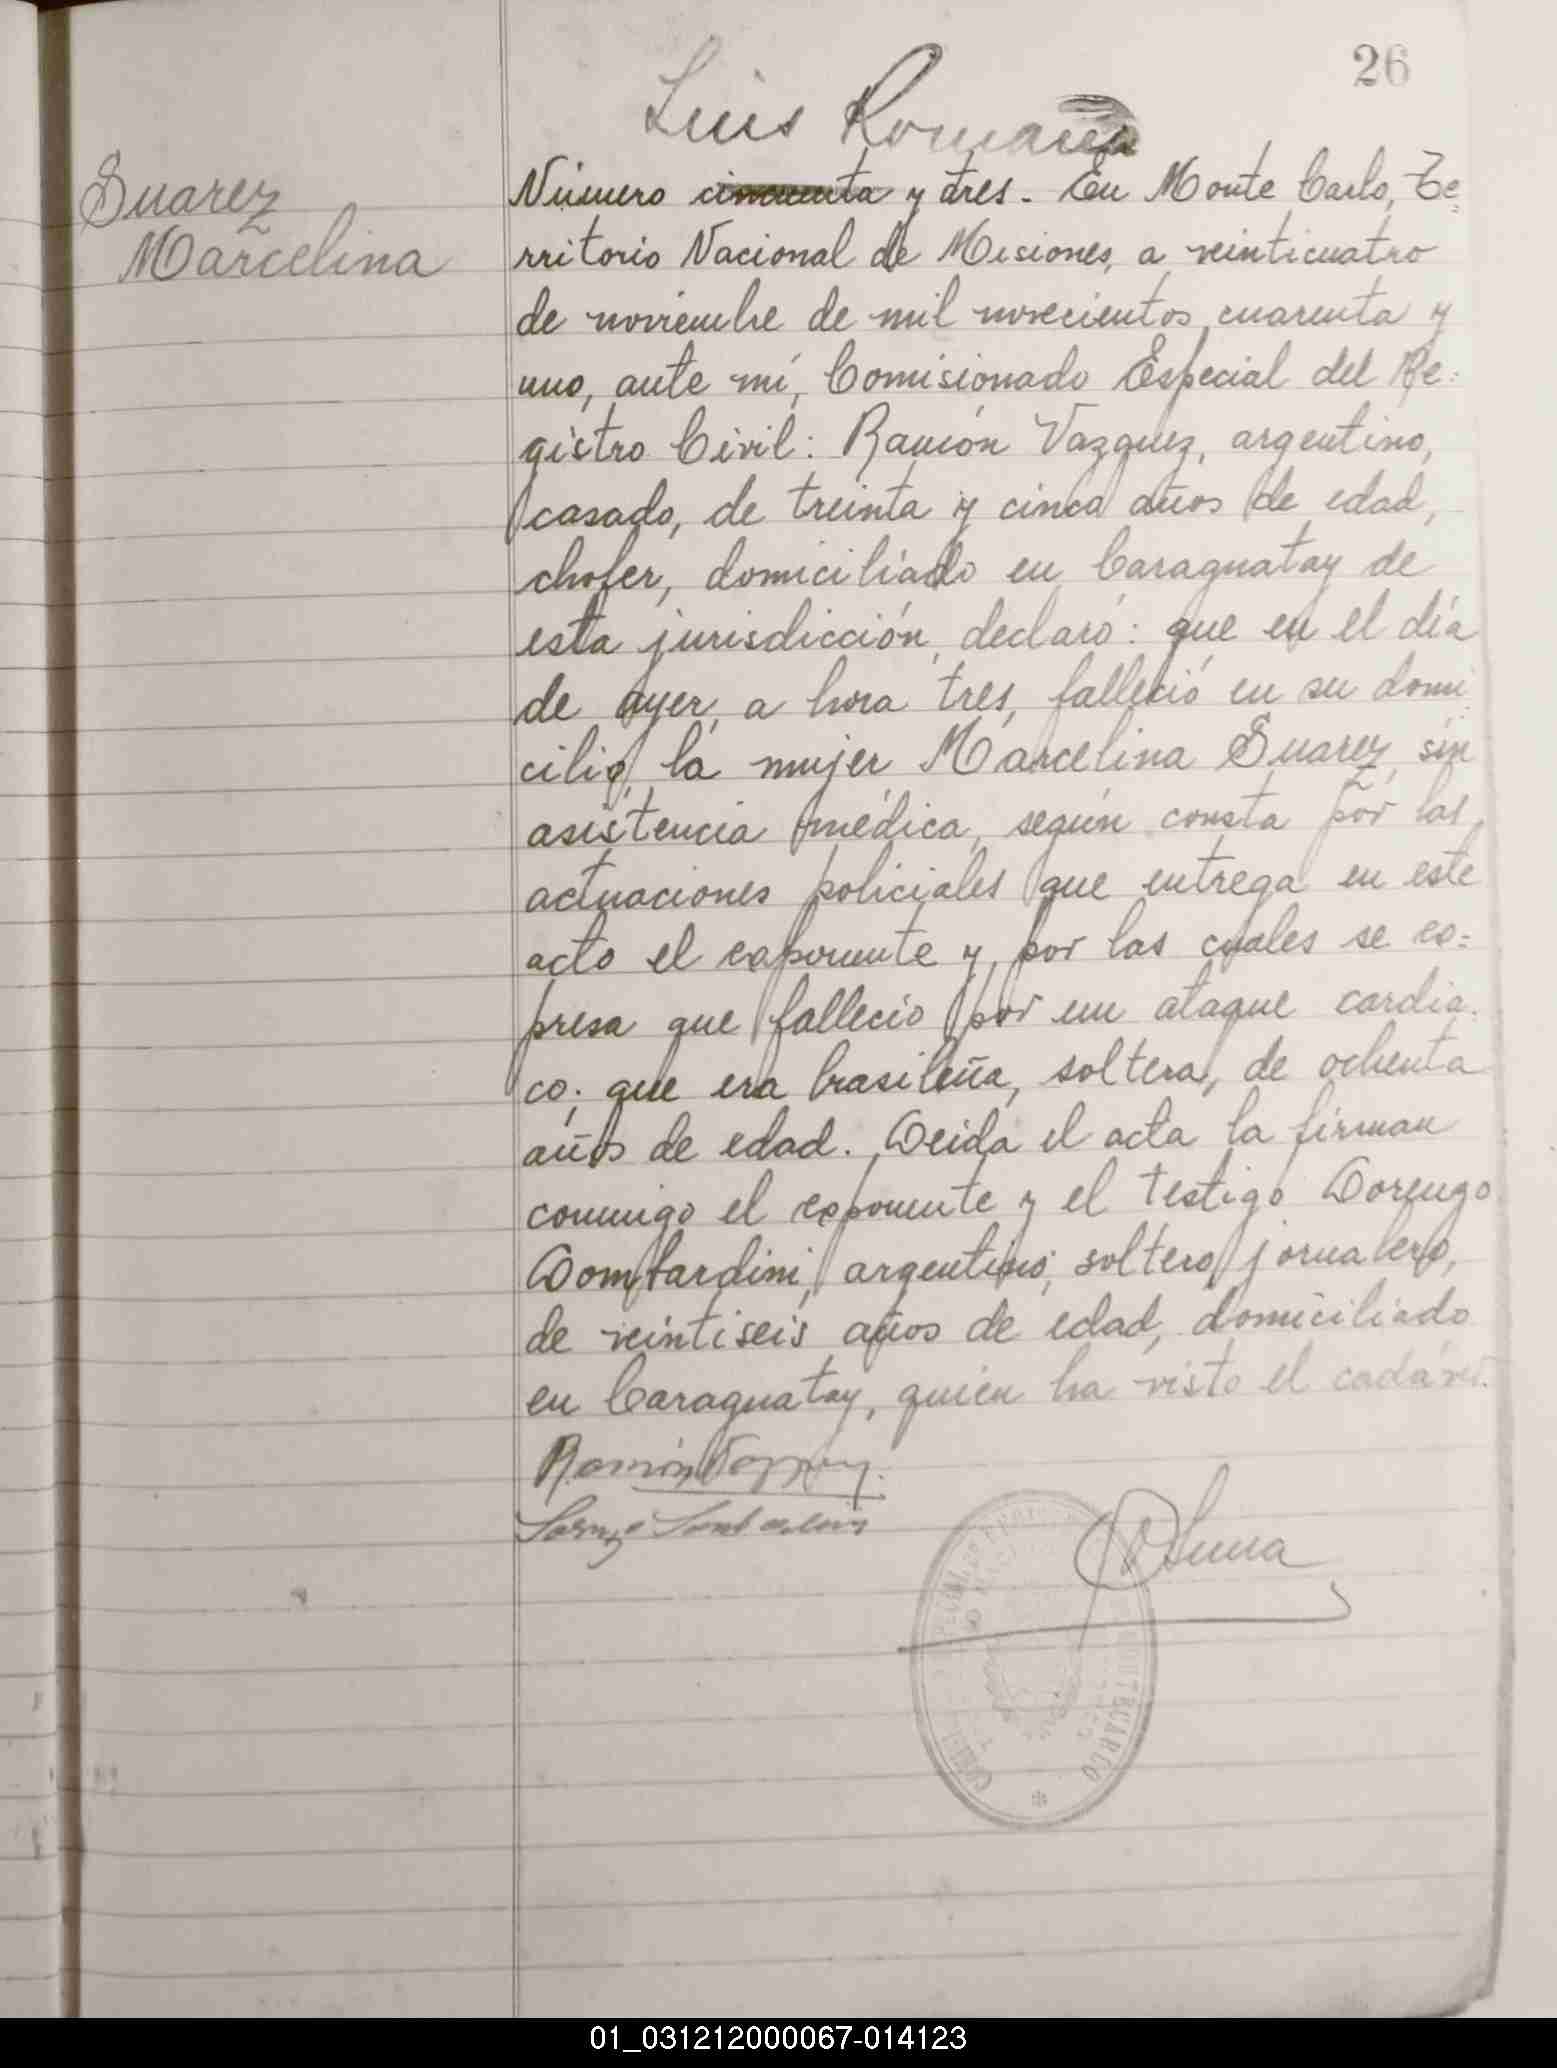 26
Luis Romaña
Suarez
Marcelina
Número cincuenta y tres. En Monte Carlo, Te=
rritorio Nacional de Misiones, a veinticuatro
de noviembre de mil novecientos cuarenta y
uno, ante mí, Comisionado Especial del Re=
gistro Civil: Ramón Vazquez, argentino,
casado, de treinta y cinco años de edad,
chofer, domiciliado en Caraguatay de
esta jurisdicción, declaró: que en el día
de ayer, a hora tres, falleció en su domi=
cilio, la mujer Marcelina Suarez, sin
asistencia médica, según consta por las
actuaciones policiales que entrega en este
acto el exponente y, por las cuales se ex=
presa que falleció por un ataque cardia=
co; que era brasileña, soltera, de ochenta
años de edad. Leida el acta la firman
conmigo el exponente y el testigo Lorenzo
Lombardini, argentino, soltero, jornalero,
de veintiseis años de edad, domiciliado
en Caraguatay, quien ha visto el cadáver.
Ramón Vazquez.
Lorenzo Lombardini
Luna
MONTECARLO
01_031212000067-014123